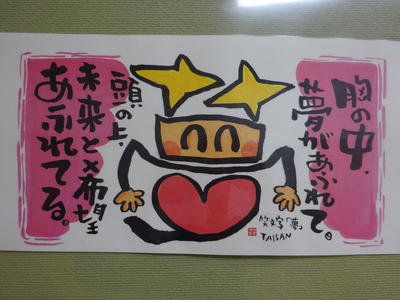 胸の中、
夢があふれて。
頭の上、
未来と希望
あふれてる。
笑文字「夢」
TAISAN